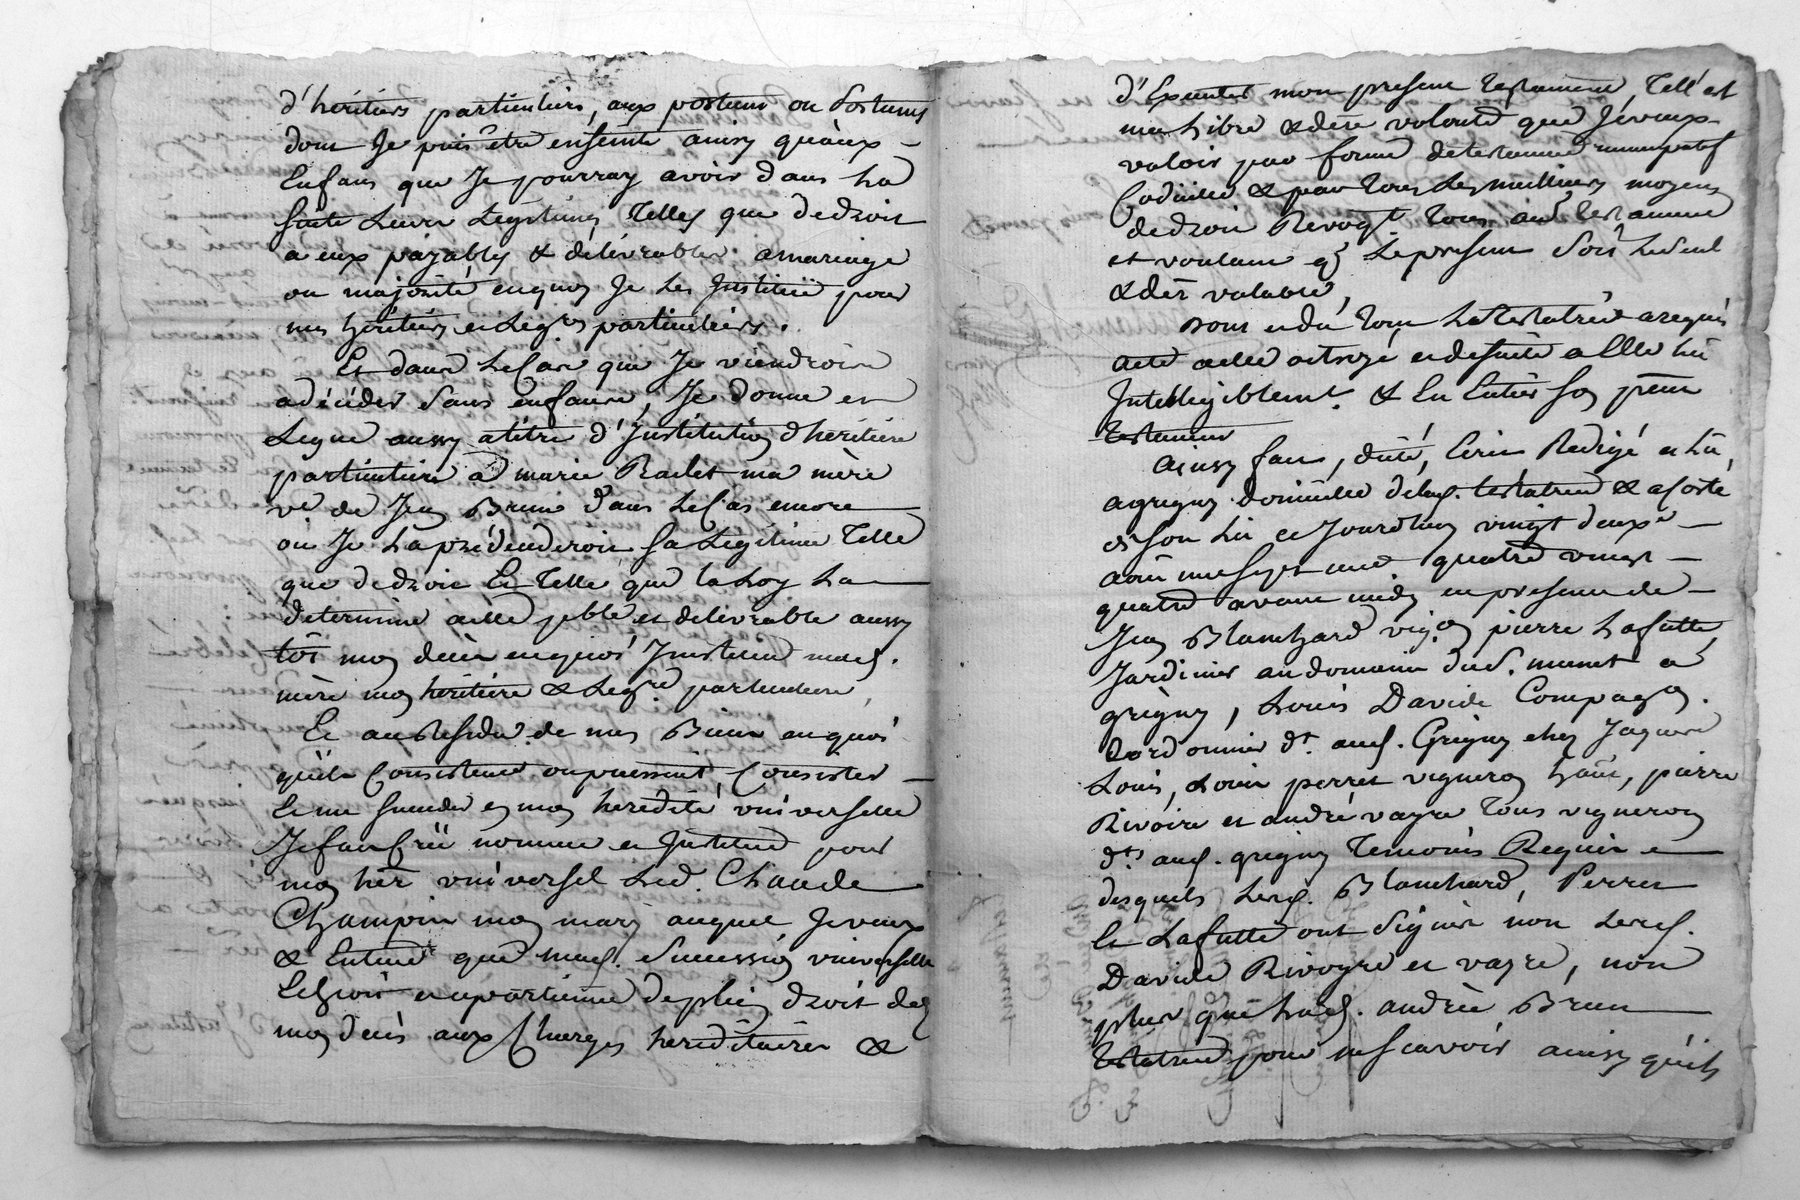 d'heritiers particuliers, aux postum ou Postums
dont Je puis être enseinte ainsy qu'aux
Enfans que Je pourray avoir dans La
suitte Leurs Legitimes Telles que de droit
a eux païables & délivrables a mariage
ou majorité en quoy Je Les Institüe pour
mes héritiers et Légres particuliers.
Et dans Le Cas que Je viendrois
a décéder sans enfants, Je donne et
Legue aussy a titre d'Institution d'héritiere
particuliere a marie Rachet ma mère
ve de Jean Brun dans Le Cas encore
où Je La prédécederois sa Legitime Telle
que de droit Et Telle que la Loy La
determine a elle pble et delivrable aussy
tôt mon décès en quoi Jnstitue mad.
mère mon heritière & Legre particuliere,
Et au Residu de mes Biens en quoi
qu'ils Consistent ou puissent Consister
Et me succeder en mon heredité vniverselle
J'ay fait Créé nommé et Institué pour
mon hér vniversel Led. Claude
Champin mon mary auquel Je veux
& Entend que mad. Succession vniverselle
Echoit et apartienne de plein droit dès
mon decès aux Charges héréditaires &
d'Executer mon present Testament, Tell' est
ma Libre & dère volonté que Je veux
valoir par forme de testament nuncupatif
Codicille & par Tous Les meilleurs moyens
de droit Revoqt Tous autres Testaments
et voulant q Le present Soit Le Seul
& der valable,
Dont et du Tout La Testatrice a requis
acte a elle octroyé et de suitte a Elle Lü
Intelligiblemt & En Entier Son pnt
testament
Ainsy fait, dicté, Ecrit Redigé et Lü,
a grigny domicille de lad. testatrice & a coste
et son Lit ce Jourdhuy vingt deuxe
aoüt mil sept cent quatre vingt
quatre avant midy en presence de
Jean Blanchard vigon pierre Lafutte
Jardinier au domaine dud. munet a
grigny, Louis Davide Compagon
Cordonnier dt aud. Grigny chez Jaques
Louis, Louis perret vigneron haut, pierre
Rivoire et andré vayre Tous vignerons
dts aud. grigny Temoins Requis
desquels Lesd. Blanchard, Perret
Et Lafutte ont Signé non Lesd.
Davide Rivoyre et vayre, non
plus que Lad. andrée Brun
testatrice pour ne scavoir ainsy qu'ils